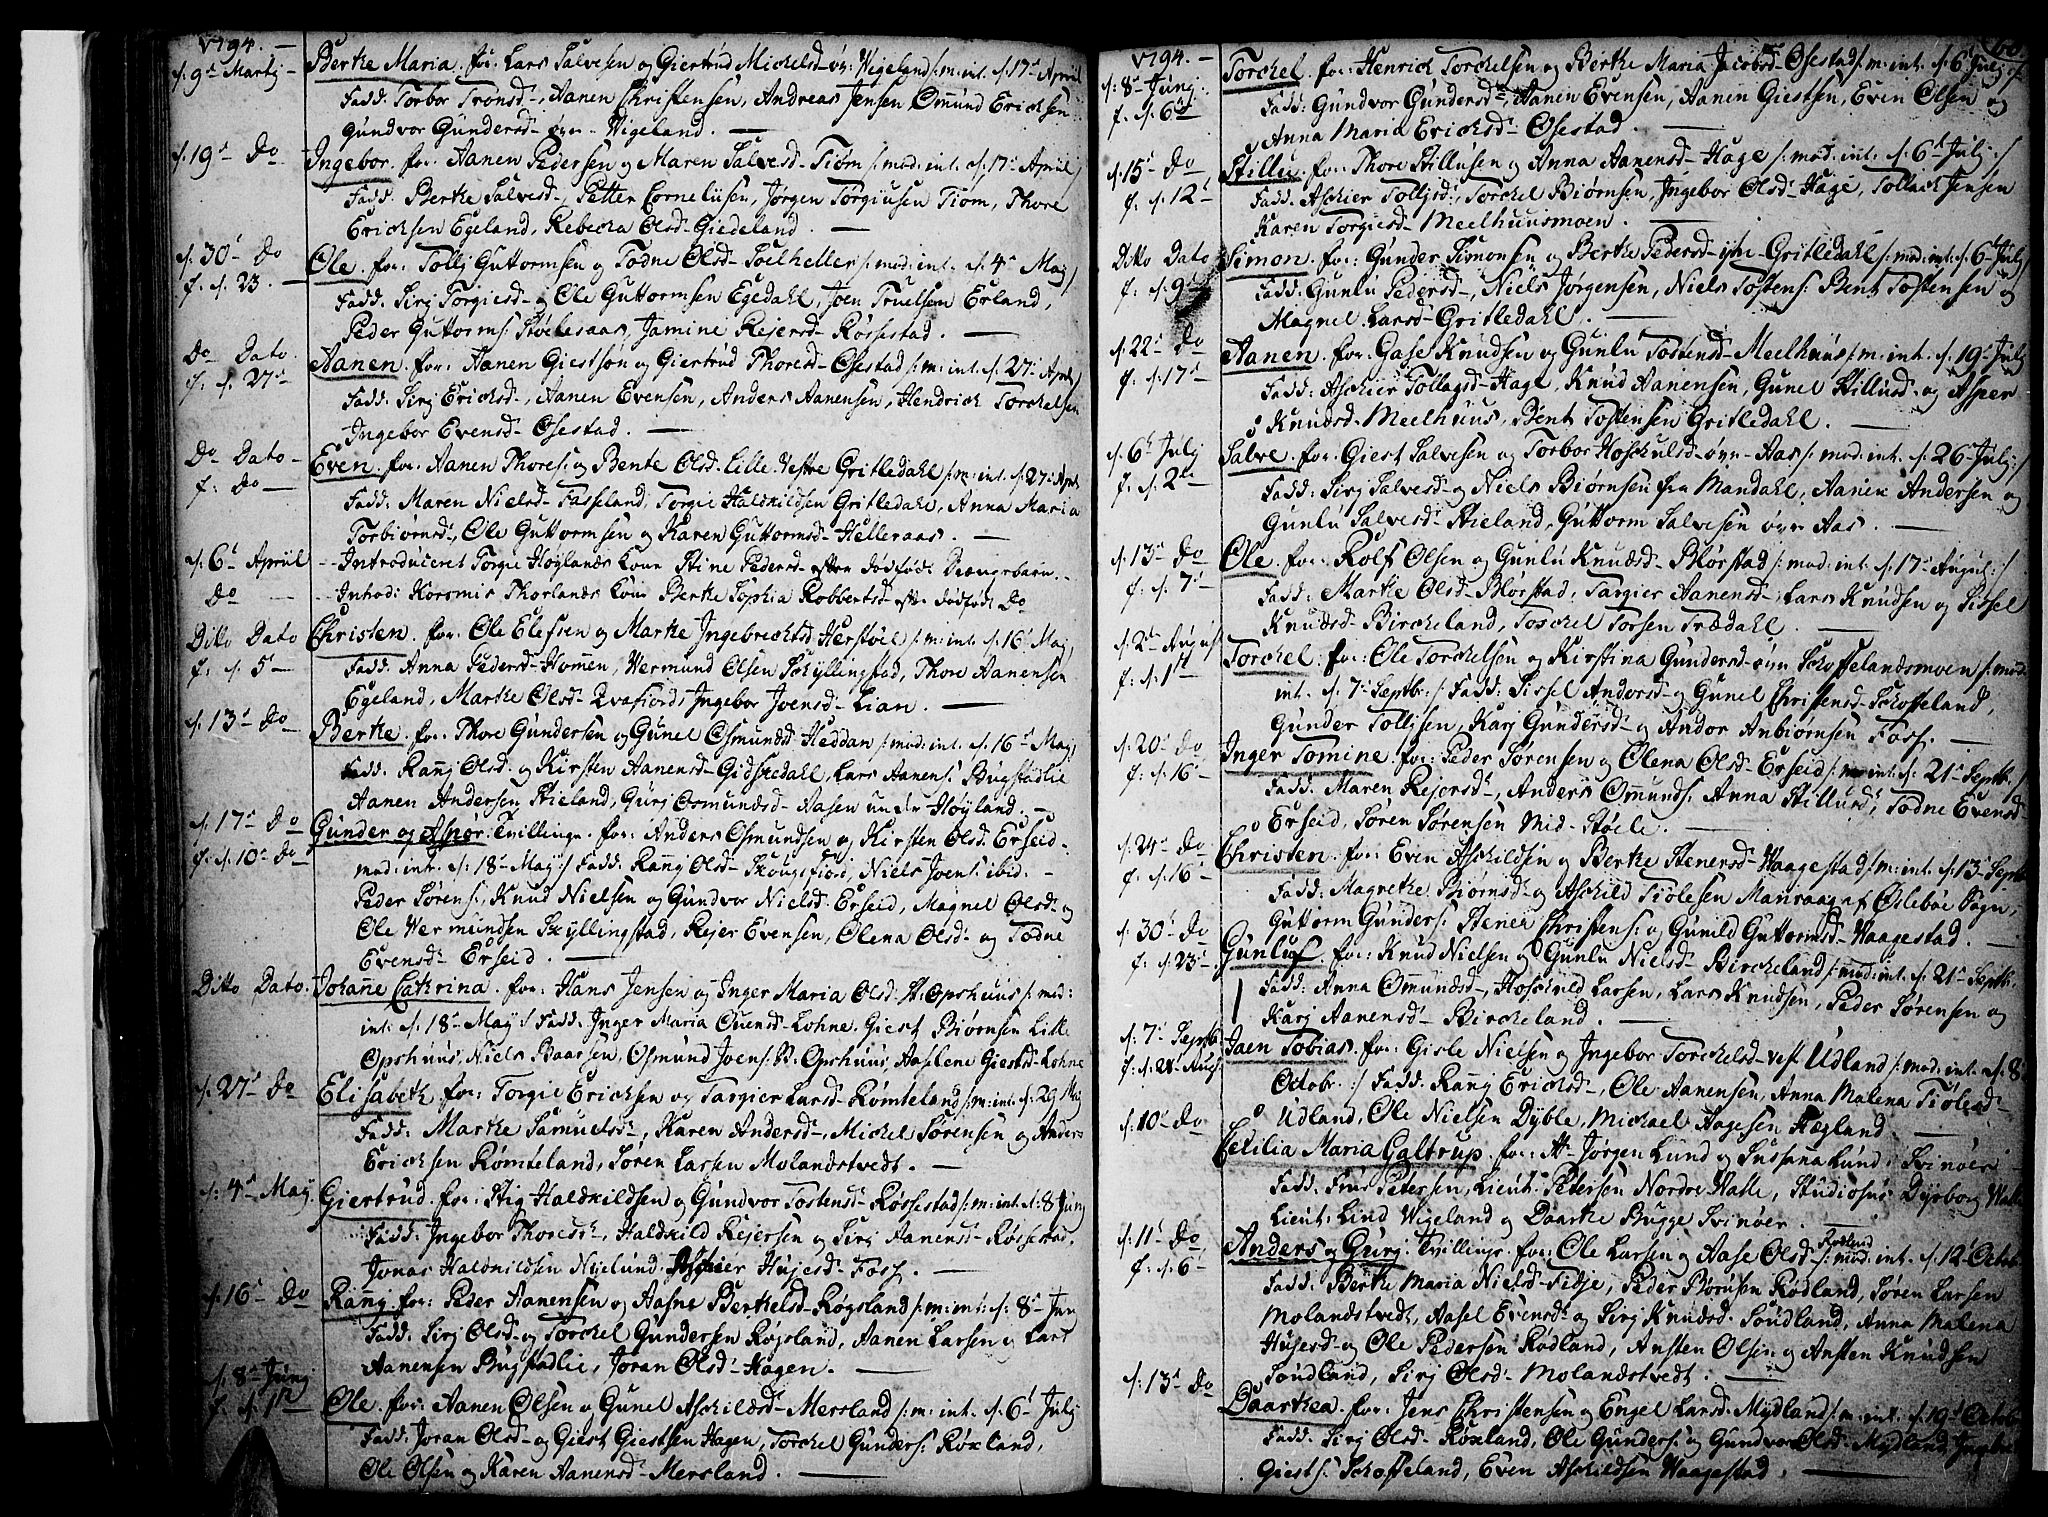 1794. —
d: 9de Martij – Berthe Maria. for: Lars Salvesen og Giertrud Mickelsd– øv: Wigeland /: m: int. d: 17de Apriil
Fadd: Torbor Tronsd–, Aanen Christensen, Andreas Jensen Omund Ericksen
Gundvor Gundersd– øvr– Wigeland. —
d: 19de Do Ingebor. for: Aanen Pedersen og Maren Salvesd– Tiøm /: mod: int. d: 17de Apriil /
Fadd: Berthe Salvesd–, Petter Corneliusen, Jørgen Torgiusen Tiom, Thore
Ericksen Egeland, Rebecka Olsd– Giedeland. —
d: 30de Do Ole. for: Tollj Guttormsen og Todne Olsd– Toelheller /: mod: int. d: 4de Maj /
f. d. 23. —
Fadd: Sirj Torgiesd– og Ole Guttormsen Egedahl, Joen Truelsen Erland,
Peder Guttorms: Støelesaas, Jamine Rejersd– Røssestad. —
Do Dato. Aanen. for: Aanen Giestson og Giertrud Thoresd– Osestad /: m: int. d. 27de April
f. d. 27de
Fadd: Sirj Ericksd–, Aanen Evensen, Anders Aanensen, Hendrick Torckelsen
Ingebor Evensd– Osestad. —
Do Dato – Even. for: Aanen Thores: og Bente Olsd: Lille Vestre Gritledahl /: m: int. d: 27: April
f: Do —
Fadd: Maren Nielsd– Fasseland, Torgie Haldvildsen Gritledahl, Anna Maria
Torbiørnsd–, Ole Guttormsen og Karen Guttormsd– Helleraas. —
d: 6te Apriil -- Introduceret Torgie Høylands Kone Stine Pedersd– efter dødfød: Drængebarn. –
Do — -- Inhod: Thorlands Kone Berthe Sophia Robbertsd– eftr dødfød: Do
Ditto Dato Christen. for: Ole Elefsen og Marthe Ingebrechtsd– Herstøel /: m: int. d. 16de Maj /
f: d: 5 —
Fadd: Anna Pedersd– Homen, Wermund Olsen Schyllingstad, Thore Aanensen
Egeland, Marthe Olsd– Qvafiord, Ingebor Joensd– Lian. —
d: 13de Do Berthe. for: Thore Gundersen og Gunel Osmundsd– Heddan /: mod: int. d. 16de Maj /
Fadd: Ranj Olsd– og Kirsten Aanensd– Gidskedahl, Lars Aanens: Bugstadlie
Aanen Andersen Stieland, Gurj Osmundsd– Aasen under Høyland. –
d: 17de Do Gunder og Asnor: Tvillinge. for: Anders Osmundsen og Kirsten Olsd: Erseid –
f. d. 10de Do
mod: int. d. 18de Maij :/ Fadd: Ranj Olsd– Skougsfiord, Niels Joens: ibid. –
Peder Sørens:, Knud Nielsen og Gundvor Nielsd– Erseid, Magnel Olsd– og
Ole Wermundsen Skyllingstad, Rejer Evensen, Olena Olsd– og Todne
Evensd– Erseid. —
Ditto Dato. Johane Cathrina. for: Hans Jensen og Inger Maria Olsd: St: Opshuus /: mod:
int: d. 18de Maij :/ Fadd: Inger Maria Ouensd– Lohne, Giest Biørnsen Litle
Opshuus, Niels Baarsen, Osmund Joens: St: Opshuus, Aaslene Giestsd– Lohne
d: 27de Do Elisabeth for: Torgie Ericksen og Targier Larsd– Rømteland /: m: int. d. 29 Maj
Fadd: Marthe Samuelsd–, Karen Andersd–, Mickel Sørensen og Anders
Ericksen Rømteland, Søren Larsen Molandstvedt. —
d: 4de Maij Giertrud. for: Stig Haldvildsen og Gundvor Tostensd– Røssestad /: m: int. d. 8 Junj
Fadd: Ingebor Thoresd–, Haldvild Rejersen og Sirj Aanensd– Røssestad.
Jonas Haldvildsen Nyelund, Huiesd– Foss. —
d: 16de Do Ranj. for: Peder Aanensen og Aasne Berthelsd– Røgsland /: m: int: d. 8de Jun
Fadd: Sirj Olsd– og Torckel Gundersen Røgsland, Aanen Larsen og Lars
Aanensen Bugstadlie, Joran Olsd– Hagen. —
d. 8de Junij Ole. for: Aanen Olsen og Gunel Aschildsd– Mersland /: m: int. d. 6te Julij
f. d. 1ste
Fadd: Joran Olsd– og Giest Giestsen Hagen, Torckel Gunders: Røxland,
Ole Olsen og Karen Aanensd– Mersland. —
1794. — 60
d: 8de Junij: Torckel. for: Henrich Torckelsen og Berthe Maria Jacobsd– Osestad /: m: int. d. 6te Julij :/
f. d. 6te
Fadd: Gundvor Gundersd–, Aanen Evensen, Aanen Giestsen, Even Olsen og
Anna Maria Ericksd– Osestad. —
d. 15de Do Stillu. for: Thore Stillusen og Anna Aanensd– Hage /: mod: int. d. 6te Julij :/
f. d. 12te –
Fadd: Aschier Tollgsd–, Torckel Biørnsen, Ingebor Olsd– Hage, Tollack Jensen
Karen Torgiesd– Meelhuusmoen. —
Ditto Dato Simon. for: Gunder Simonsen og Berthe Pedersd– Gritledahl /: mod: int. d. 6te Julij
f. d. 9de
Fadd: Gunlu Pedersd–, Niels Jørgensen, Niels Tostens: Bent Tostensen og
Magnel Larsd– Gritledahl. —
d. 22de Do Aanen. for: Gase Knudsen og Gunlu Tostensd– Meelhuus /: m: int. d. 19de Julij
f. d. 17de
Fadd: Aschier Tollagsd– Hage, Knud Aanensen, Gunel Stillusd– og Asper
Knudsd– Meelhuus, Bent Tostensen Gritledahl. —
d: 6te Julij Salve. for: Giest Salvesen og Torbor Hoschulsd– øvr– Aas /: mod: int. d. 26 Julij :/
f. d. 2den
Fadd: Sirj Salvesd– og Niels Biørnsen fra Mandahl, Aanen Andersen og
Gunlu Salvesd– Stieland, Guttorm Salvesen øvr Aas. —
d. 13de Do Ole. for: Rolf Olsen og Gunlu Knudsd– Blørstad /: mod: int. d. 17de August :/
f. d. 7de –
Fadd: Marthe Olsd– Blørstad, Targier Aanensd– Lars Knudsen og Sissel
Knudsd– Birckeland, Torckel Torsen Trædahl. —
d: 2den August Torckel. for: Ole Torckelsen og Kirstina Gundersd– øvr Schoffelandsmoen /: mod.
f. d. 1ste
int. d. 7de Septbr. :/ Fadd: Sissel Andorsd– og Gunel Christensd– Schoffeland,
Gunder Tolljsen, Karj Gundersd– og Andor Anbiørnsen Foss. —
d: 20de Do Inger Tomine. for: Peder Sørensen og Olena Olsd– Erseid /: m: int. d: 21de Septb: /
f. d. 16de
Fadd: Maren Rejersd–, Anders Omunds: Anna Stillusd–, Todne Evensd–
Erseid, Søren Sørensen Mid– Støele. —
d: 24de Do Christen. for: Even Aschildsen og Berthe Stenersd– Waagestad /: m: int. d. 13de Septb
f. d. 16de
Fadd: Magrethe Biørnsd– og Aschild Tiølesen Manvaag af Øslebøe Sogn,
Guttorm Gunders: Stener Christens: og Gunild Guttormsd– Waagestad. —
d. 30de Do Gunluf. for: Knud Nielsen og Gunlu Nielsd– Birckeland /: mod: int. d. 21de Septb:
f. d. 23de
Fadd: Anna Omundsd–, Hoschuld Larsen, Lars Knudsen, Peder Sørensen og
Karj Aanensd– Birckeland. —
d: 7de Septb Jaen Tobias. for: Gisle Nielsen og Ingebor Torckelsd– vest. Udland /: mod: int. d. 8
f. d. 24 Aug
Octobr. :/ Fadd: Ranj Ericksd–, Ole Aanensen, Anna Malena Tiølesd–
Udland, Ole Nielsen Dyble, Mickael Aagesen Hægland —
d: 10de Do Cecilia Maria Galtrup. for: Hr Jørgen Lund og Susana Lund: Svinøer
Fadd: Frue Petersen, Lieut: Petersen Nordre Walle, Studiosus Dyrborg Walle
Lieut: Lind Wigeland og Daarthe Bugge Svinøer. —
d: 11te Do Anders og Gurj. Tvillinge for: Ole Larsen og Aase Olsd– Rødland /: mod: int. d. 12te Octob:
f. d. 6te –
Fadd: Berthe Maria Nielsd– Tidje, Peder Børusen Rødland, Søren Larsen
Molandstvedt, Aasel Evensd– og Sirj Knudsd– Soudland, Anna Malena
Huiesd– og Ole Pedersen Rødland, Ansten Olsen og Ansten Knudsen
Soudland, Sirj Olsd– Molandstvedt. —
d: 13de Do Daarthea. for: Jens Christensen og Engel Larsd– Mydland /: m: int. d. 19de Octob
Fadd: Sirj Olsd– Røxland, Ole Gunders: og Gundvor Olsd– Mydland,
Giests: Schoffeland, Even Aschildsen Waagestad. —